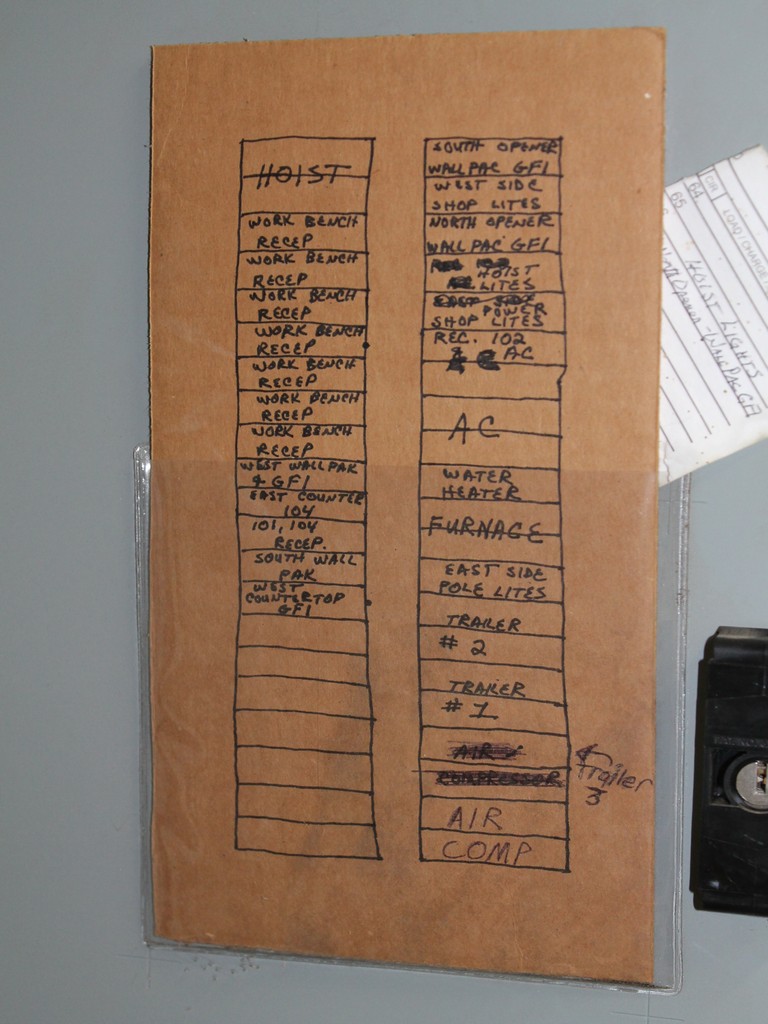 HOIST
WORK BENCH
RECEP
WORK BENCH
RECEP
WORK BENCH
RECEP
WORK BENCH
RECEP
WORK BENCH
RECEP
WORK BENCH
RECEP
WORK BENCH
RECEP
WEST WALL PAK
& GFI
EAST COUNTER
104
101, 104
RECEP.
SOUTH WALL
PAK
WEST
COUNTERTOP
GFI
SOUTH OPENER
WALL PAC GFI
WEST SIDE
SHOP LITES
NORTH OPENER
WALL PAC GFI
HOIST
LITES
EAST SIDE
POWER
SHOP LITES
REC. 102
& AC
AC
WATER
HEATER
FURNACE
EAST SIDE
POLE LITES
TRAILER
# 2
TRAILER
# 1
AIR
COMPRESSOR
Trailer
3
AIR
COMP
OR LOAD/CHARGE
64
65
HOIST LIGHTS
WALL PAC GFI